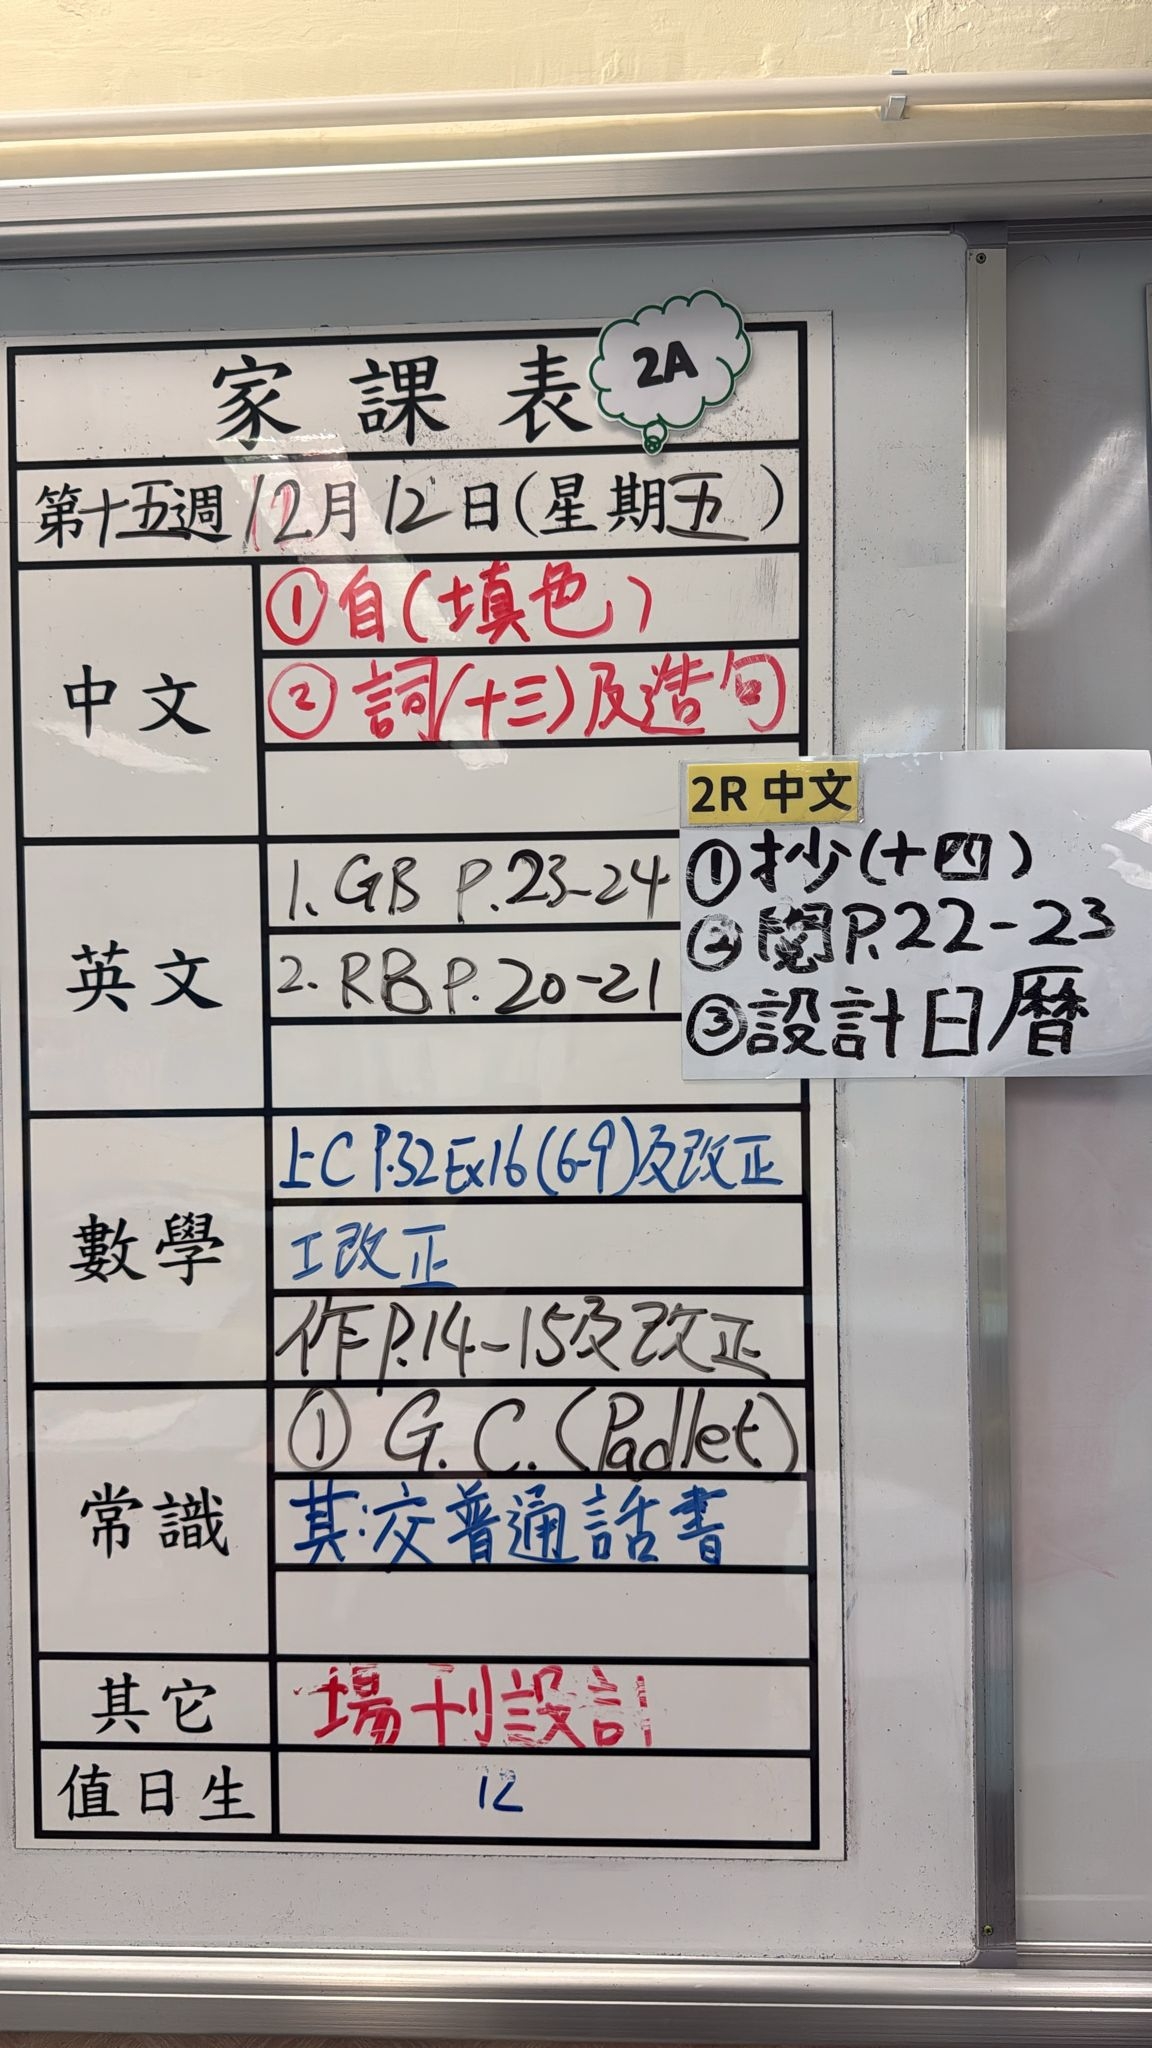 家課表
2A
第十五週 12月12日(星期五)
中文
①自(填色)
②詞(十三)及造句
2R 中文
①抄(十四)
②閱P.22-23
③設計日曆
英文
1. GB P.23-24
2. RB P.20-21
數學
上C P.32 Ex16(6-9)及改正
工改正
作P.14-15及改正
常識
① G.C.(Padlet)
其:交普通話書
其它
場刊設計
值日生
12